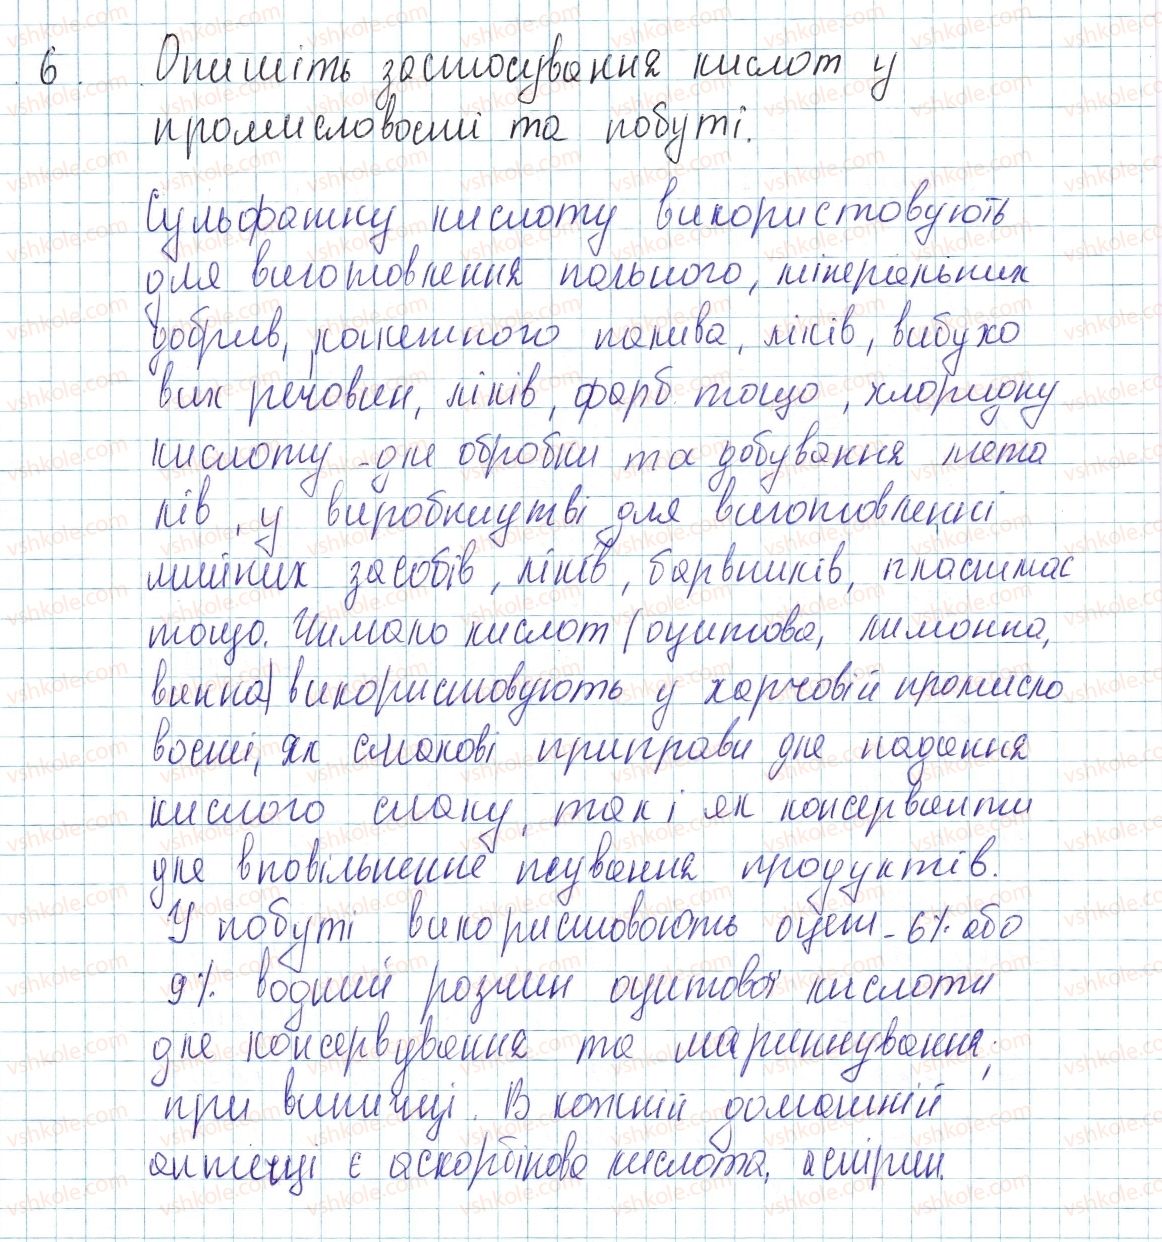 6. Опишіть застосування кислот у
промисловості та побуті.
Сульфатну кислоту використовують
для виготовлення пального, мінеральних
добрив, ракетного палива, ліків, вибухо
вих речовин, ліків, фарб тощо, хлоридну
кислоту - для обробки та добування мета
лів, у виробництві для виготовленні
мийних засобів, ліків, барвників, пластмас
тощо. Чимало кислот (оцитова, лимонна,
винна) використовують у харчовій промисло
вості, як смакові приправи для надання
кислого смаку, так і як консерванти
для вповільнення псування продуктів.
У побуті використовоють оцет - 6% або
9% водний розчин оцитової кислоти
для консервування та маринування,
при випічці. В кожній домашній
аптечці є аскорбінова кислота, аспірин.